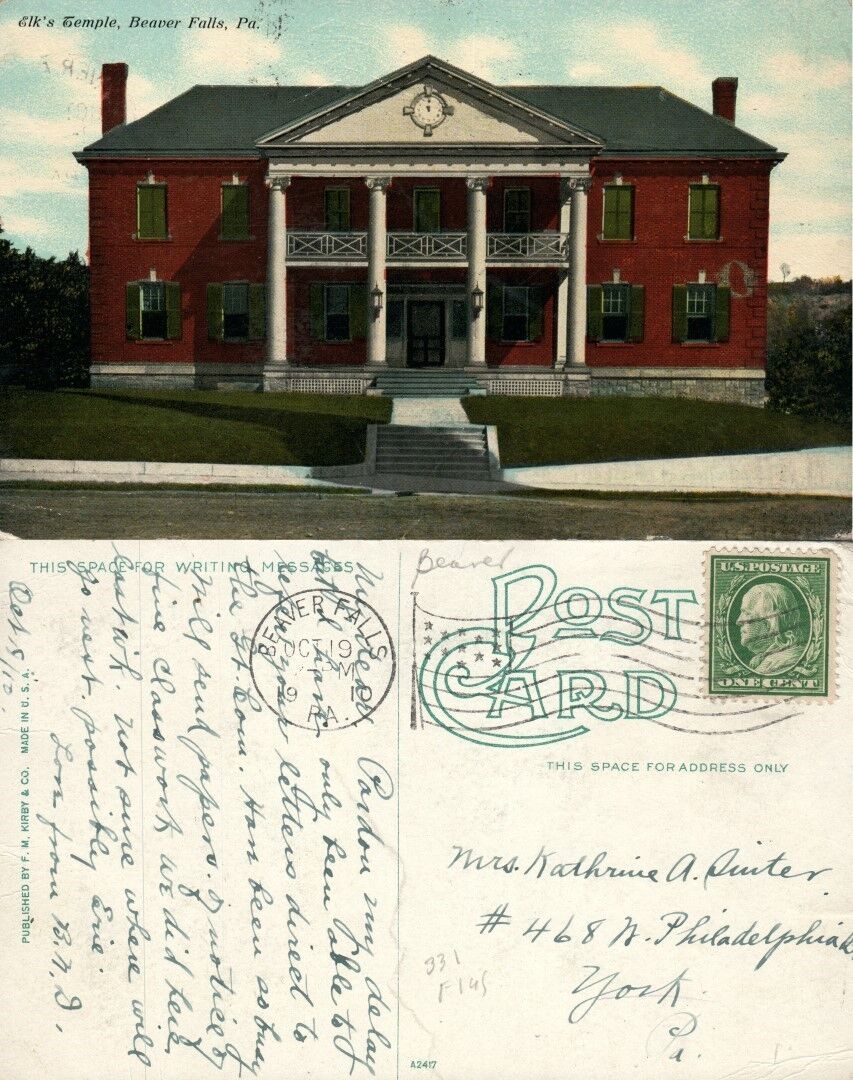 Elk's Temple, Beaver Falls, Pa.
THIS SPACE FOR WRITING MESSAGES
Pardon my delay
but I have only been able to
your letters direct to
the Gr. Com. Have been so busy
Will send papers. & notices of
fine classwork we did here
last wk. Not sure where will
go next. possibly Erie.
Love from B.N.D.
Oct 5/12.
PUBLISHED BY F. M. KIRBY & CO. MADE IN U. S. A.
BEAVER FALLS
OCT 19
PM
191
PA.
Beaver
POST CARD
U.S. POSTAGE
ONE CENT
THIS SPACE FOR ADDRESS ONLY
Mrs. Kathrine A.
# 468 W. Philadelphia
York.
Pa.
331
A2417